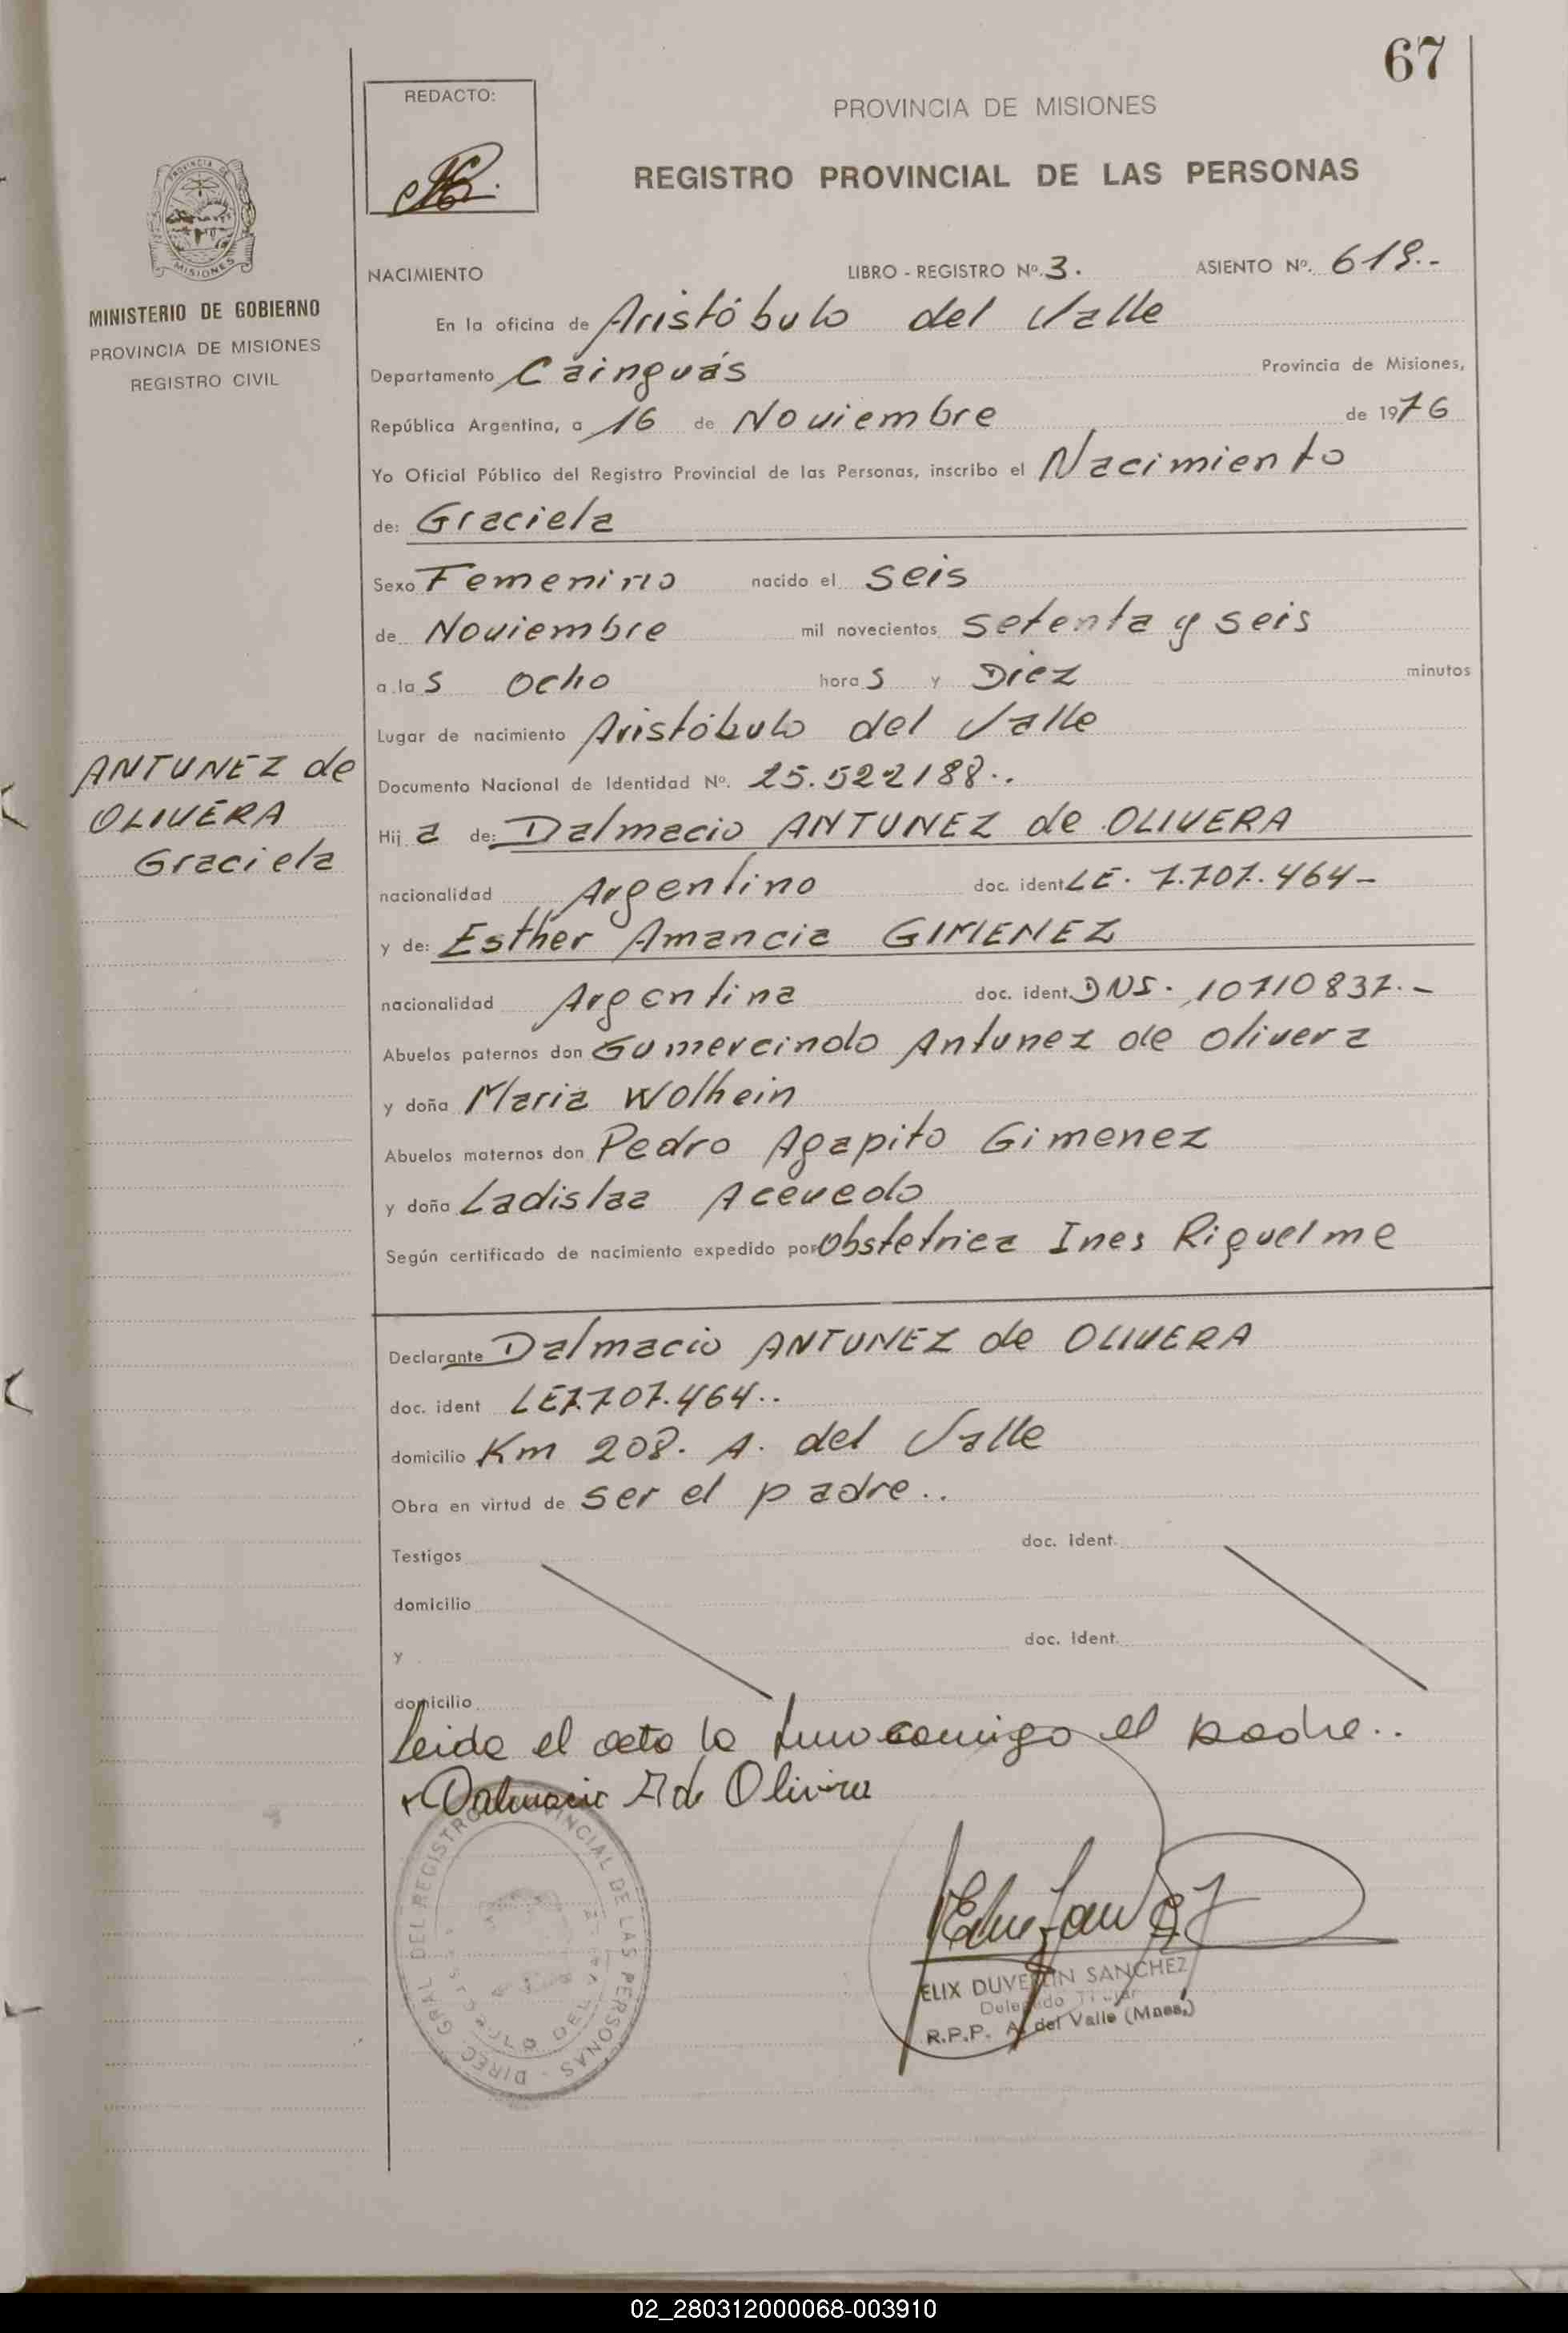 67
REDACTO:
PROVINCIA DE MISIONES
REGISTRO PROVINCIAL DE LAS PERSONAS
PROVINCIA DE
MISIONES
MINISTERIO DE GOBIERNO
PROVINCIA DE MISIONES
REGISTRO CIVIL
NACIMIENTO LIBRO - REGISTRO Nº. 3. ASIENTO Nº. 619.-
En la oficina de Aristóbulo del Valle
Departamento Cainguás Provincia de Misiones,
República Argentina, a 16 de Noviembre de 1976
Yo Oficial Público del Registro Provincial de las Personas, inscribo el Nacimiento
de: Graciela
Sexo Femenino nacido el seis
de Noviembre mil novecientos setenta y seis
a las ocho horas y Diez minutos
Lugar de nacimiento Aristóbulo del Valle
Documento Nacional de Identidad Nº. 25.522188..
ANTUNEZ de
OLIVERA
Graciela
Hija de: Dalmacio ANTUNEZ de OLIVERA
nacionalidad Argentino doc. ident LE. 7.707.464-
y de: Esther Amancia GIMENEZ
nacionalidad Argentina doc. ident. DNI. 10710837.-
Abuelos paternos don Gumercindo Antunez de Olivera
y doña Maria Wolhein
Abuelos maternos don Pedro Agapito Gimenez
y doña Ladislaa Acevedo
Según certificado de nacimiento expedido por Obstetrica Ines Riquelme
Declarante Dalmacio ANTUNEZ de OLIVERA
doc. ident LE7.707.464..
domicilio Km 208. A. del Valle
Obra en virtud de ser el padre..
Testigos doc. ident.
domicilio
y doc. ident.
domicilio
Leida el acta la firma comigo el padre..
Dalmacio A de Olivera
DIREC. GRAL. DEL REGISTRO PROVINCIAL DE LAS PERSONAS
ARISTOBULO DEL VALLE
ELIX DUVERLIN SANCHEZ
Delegado Titular
R.P.P. A. del Valle (Mnes.)
02_280312000068-003910